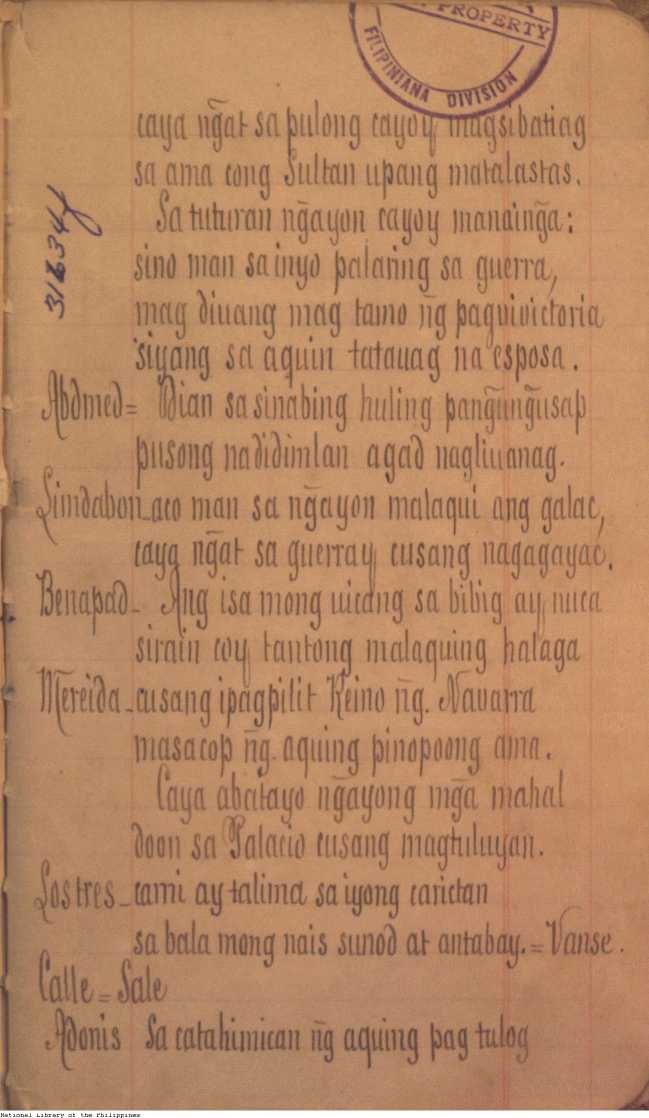 PROPERTY
FILIPINIANA DIVISION
caya ñgat sa pulong cayoy magsibatiag
sa ama cong Sultan upang matalastas.
Sa tuturan ñgayon cayoy manain̄ga:
316344
sino man sa inyo palaring sa guerra,
mag diuang mag tamo n̄g pagvivictoria
siyang sa aquin tatauag na esposa.
Abdmed= Dian sa sinabing huling pan̄gun̄gusap
pusong nadidimlan agad nagliuanag.
Limdabon_aco man sa n̄gayon malaqui ang galac,
caya n̄gat sa guerray cusang nagagayac.
Benapad_ Ang isa mong uicang sa bibig ay nuca
sirain coy tantong malaquing halaga
Mereida_cusang ipagpilit Reino n̄g. Navarra
masacop n̄g. aquing pinopoong ama.
Caya abatayo n̄gayong m̄ga mahal
doon sa Palacio cusang magtuluyan.
Los tres_cami ay talima sa iyong carictan
sa bala mong nais sunod at antabay.=Vanse.
Calle=Sale
Adonis Sa catahimican n̄g aquing pag tulog
National Library of the Philippines